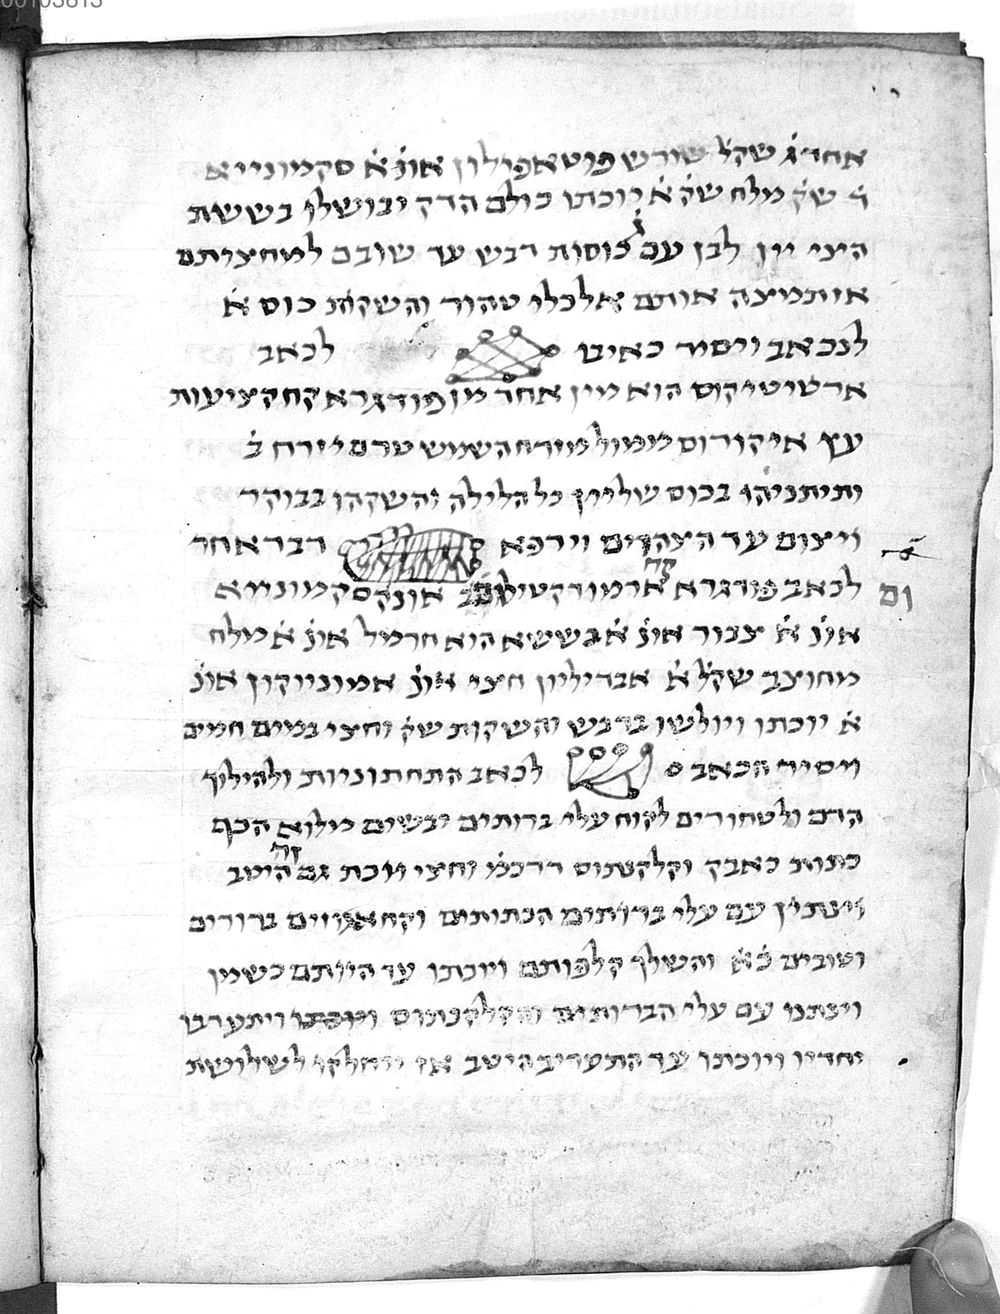 00103813
אחד ג̇ שקל̇ שורש פוטאפילון אונ̇ א̇ סקמונייא
ו̇ שק̇ מלח שק̇ א̇ יוכתו כולם הדק יבושלו בששת
היצי יין לבן עם ג̇ כוסות דבש עד שובם למחציתם
אז תמיצה אותם אל כלי טהור והשקות כוס א̇
לנכאב ויסיר כאיבו לכאב
ארטיטיקוס הוא מיין אחד מן פודגרא קח קציעות
עץ איקורוס ממול מזרח השמש טרם יזרח ב̇
ותיתניהו בכוס של יין כל הלילה והשקהו בבוקר
ויצום עד הצהרים וירפא דבר אחר
לכאב פודגרא קח ארמודקטילון אונק̇ סקמונייא
אונ̇ א̇ צבור אונ̇ א̇ בששא הוא חרמיל אונ̇ א̇ מלח
מחוצב שקל̇ א̇ אבדיליון חצי אונ̇ אמוניוקון אונ̇
א̇ יוכתו ויולשו בדבש והשקות שק̇ וחצי במים חמים
ויסיר הכאב לכאב התחתוניות ולהילוך
הדם ולטחורים לקוח עלי ברותים יבשים מילוא הכף
כתות כאבק וקלקנתוס דרכמ̇ וחצי יוכת גם זה היטב
וינתין עם עלי ברותים הכתותים וקח אגוזים ברורים
וטובים כ̇א̇ והשלך קליפותם ויוכתו עד היותם כשמן
וינתנו עם עלי הברותים והקלקנתוס ויתערבו
יחדיו ויוכתו עד התעריב היטב אז יוחלקו לשלושת